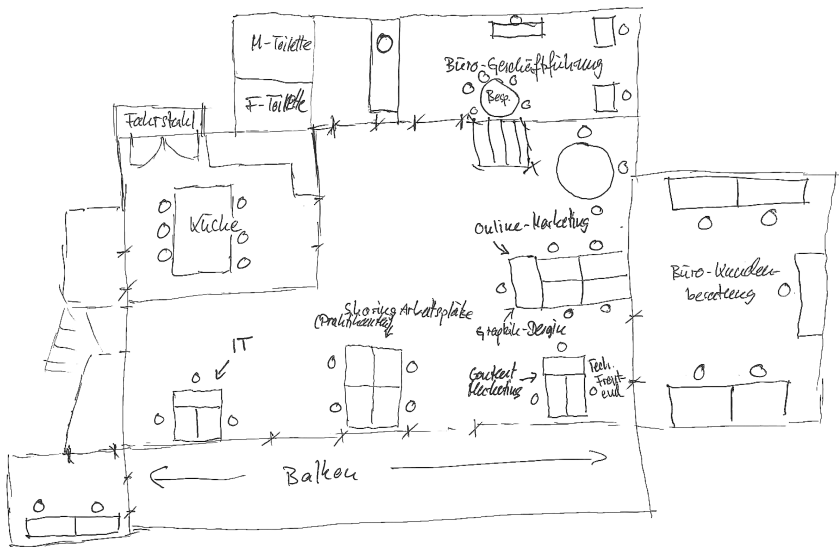 M-Toilette
F-Toilette
Büro-Geschäftsführung
Besp.
Fahrstuhl
Küche
Online-Marketing
Büro-Kunden-
beratung
Sharing Arbeitsplätze
(Praktikanten)
Graphik-Design
IT
Content
Marketing
Tech.
Front-
end
Balkon